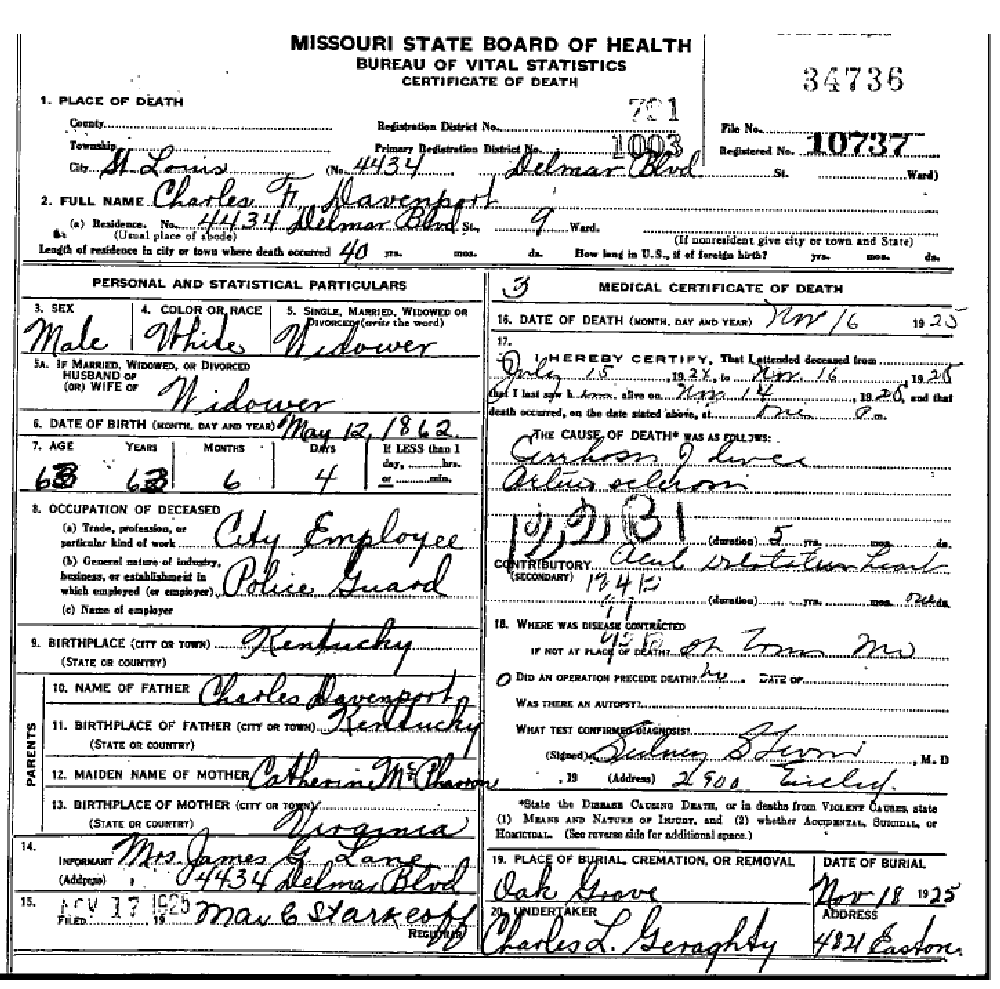 MISSOURI STATE BOARD OF HEALTH
BUREAU OF VITAL STATISTICS
CERTIFICATE OF DEATH
34736
1. PLACE OF DEATH
County
Registration District No. 791
File No.
Township
Primary Registration District No. 1003
Registered No. 10737
City St Louis (No. 4434 Delmar Blvd St. Ward)
2. FULL NAME Charles F. Davenport
(a) Residence. No. 4434 Delmar Blvd St., 9 Ward.
(Usual place of abode) (If nonresident give city or town and State)
Length of residence in city or town where death occurred 40 yrs. mos. ds. How long in U.S., if of foreign birth? yrs. mos. ds.
PERSONAL AND STATISTICAL PARTICULARS
3. SEX 4. COLOR OR RACE 5. SINGLE, MARRIED, WIDOWED OR
DIVORCED (write the word)
Male White Widower
5A. IF MARRIED, WIDOWED, OR DIVORCED
HUSBAND OF
(OR) WIFE OF
Widower
6. DATE OF BIRTH (MONTH, DAY AND YEAR) May 12, 1862.
7. AGE YEARS MONTHS DAYS If LESS than 1
day, hrs.
63 63 6 4 or min.
8. OCCUPATION OF DECEASED
(a) Trade, profession, or
particular kind of work City Employee
(b) General nature of industry,
business, or establishment in
which employed (or employer) Police Guard
(c) Name of employer
9. BIRTHPLACE (CITY OR TOWN) Kentucky
(STATE OR COUNTRY)
PARENTS
10. NAME OF FATHER Charles Davenport
11. BIRTHPLACE OF FATHER (CITY OR TOWN) Kentucky
(STATE OR COUNTRY)
12. MAIDEN NAME OF MOTHER Catherine
13. BIRTHPLACE OF MOTHER (CITY OR TOWN)
(STATE OR COUNTRY) Virginia
14.
INFORMANT Mrs. James G. Lane
(Address) 4434 Delmar Blvd
15.
FILED NOV 17 1925 19 Max C Starkloff
REGISTRAR
3 MEDICAL CERTIFICATE OF DEATH
16. DATE OF DEATH (MONTH, DAY AND YEAR) Nov 16 1925
17.
I HEREBY CERTIFY, That I attended deceased from
July 15, 1924, to Nov. 16, 1925
that I last saw h alive on Nov 14, 1925, and that
death occurred, on the date stated above, at one P m.
THE CAUSE OF DEATH* WAS AS FOLLOWS:
Cirrhosis of liver
Arteriosclerosis
(duration) 5 yrs. mos. ds.
CONTRIBUTORY Acute Dilatation heart
(SECONDARY)
(duration) yrs. mos. ds.
18. WHERE WAS DISEASE CONTRACTED
IF NOT AT PLACE OF DEATH? St Louis Mo
DID AN OPERATION PRECEDE DEATH? No. DATE OF
WAS THERE AN AUTOPSY?
WHAT TEST CONFIRMED DIAGNOSIS?
(Signed) Sidney, M. D
, 19 (Address) 2900
*State the DISEASE CAUSING DEATH, or in deaths from VIOLENT CAUSES, state
(1) MEANS AND NATURE OF INJURY, and (2) whether ACCIDENTAL, SUICIDAL, or
HOMICIDAL. (See reverse side for additional space.)
19. PLACE OF BURIAL, CREMATION, OR REMOVAL DATE OF BURIAL
Oak Grove Nov 18 1925
20. UNDERTAKER ADDRESS
Charles L. Geraghty 4821 Easton